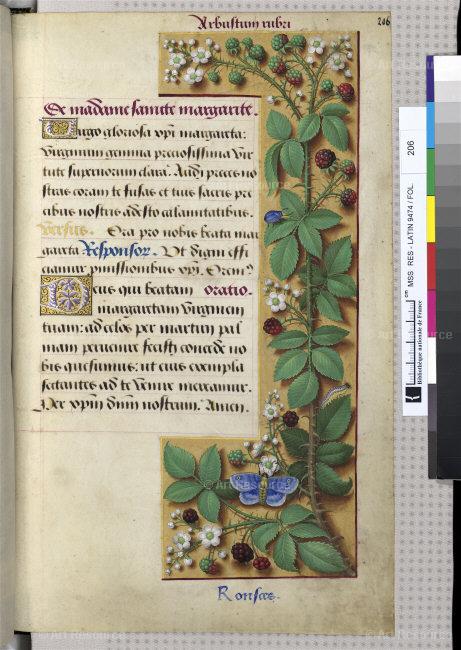 Arbustum rubri
206
De madame saincte margarite.
Virgo gloriosa xpi margarita:
Virginum gemma preciosissima vir
tute supernorum clara. Audi preces no
stras coram te fusas et tuis sacris pre
cibus nostris adesto calamitatibus.
Versus. Ora pro nobis beata mar
garita Responsor. Ut digni effi
ciamur promissionibus xpi. Orem9
Deus qui beatam oratio.
margaretam virginem
tuam: ad celos per martirii pal
mam pervenire fecisti concede no
bis quesumus: ut eius exempla
sectantes ad te venire mereamur.
Per xpm dnm nostrum. Amen.
Ronsces.
206
MSS RES - LATIN 9474 / FOL.
cm
Bibliothèque nationale de France
© Art Resource